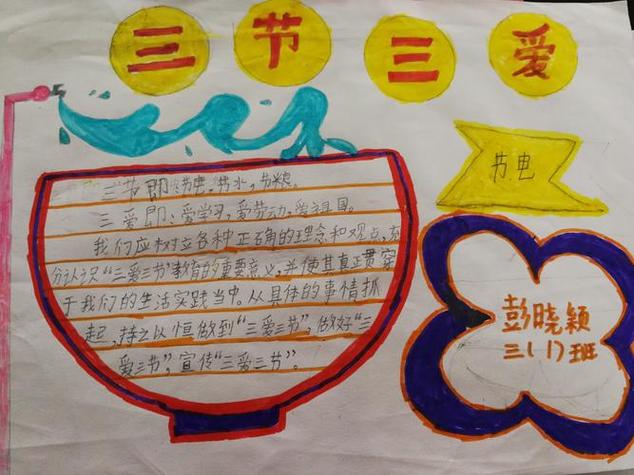 三节三爱
节电
三节即：节电，节水，节粮。
三爱即：爱学习，爱劳动，爱祖国。
我们应树立各种正确的理念和观点，充
分认识“三爱三节”教育的重要意义，并使其真正贯穿
于我们的生活实践当中。从具体的事情抓
起，持之以恒做到“三爱三节”，做好“三
爱三节”，宣传“三爱三节”。
彭晓颖
三(1)班